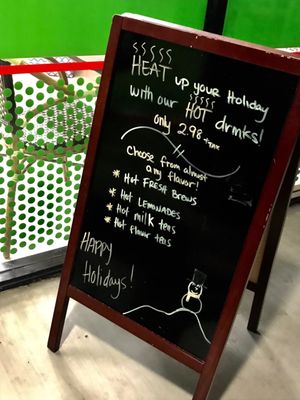 HEAT up your Holiday
with our HOT drinks!
only 2.98 +tax
Choose from almost
any flavor!
* Hot FRESH Brews
* Hot LEMONADES
* Hot milk teas
* Hot flavor teas
Happy
Holidays!